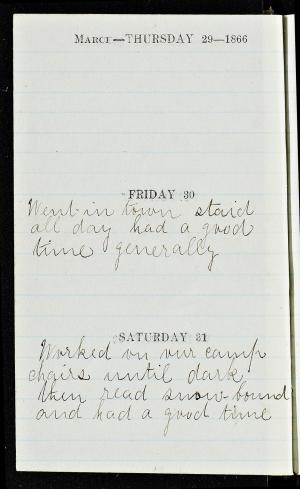 MARCH—THURSDAY 29—1866
FRIDAY 30
Went in town staid
all day had a good
time generally
SATURDAY 31
Worked on our camp
chairs until dark
then read snow-bound
and had a good time